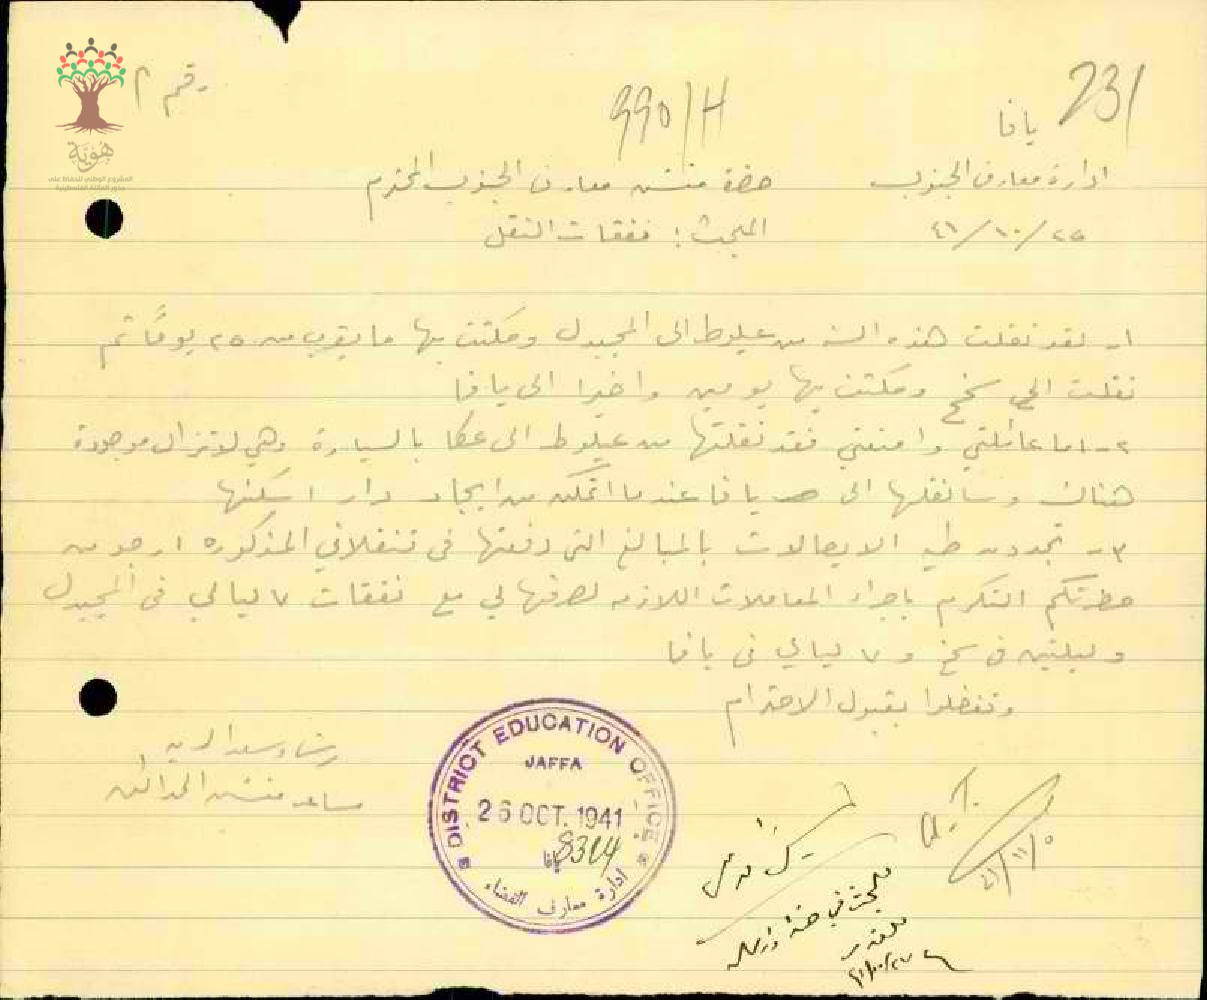 231
990/H
رقم ٢
هُوِيَّة
المشروع الوطني للحفاظ على
جذور العائلة الفلسطينية
يافا
ادارة معارف الجنوب
حضرة مفتش معارف الجنوب المحترم
٤١/١٠/٢٥
المبحث : نفقات النقل
١- لقد نقلت هذه السنه من عيلوط الى المجيدل ومكثت بها ما يقرب من ٢٥ يومًا ثم
نقلت الى سخ ومكثت بها يومين واخيرا الى يافا
٢- اما عائلتي وامتعتي فقد نقلتها من عيلوط الى عكا بالسيارة وهي لا تزال موجودة
هناك وسانقلها الى يافا عندما اتمكن من ايجاد دار اسكنها
٣- تجدون طيه الايصالات بالمبالغ التي دفعتها في تنقلاتي المذكوره ارجو من
حضرتكم التكرم باجراء المعاملات اللازمه لصرفها لي مع نفقات ٧ ليالي في المجيدل
وليلتين في سخ و ٧ ليالي في يافا
وتفضلوا بقبول الاحترام
مساعد مفتش
DISTRICT EDUCATION OFFICE
JAFFA
26 OCT. 1941
8314
يافا
ادارة معارف القضاء
٤١/١١/٥